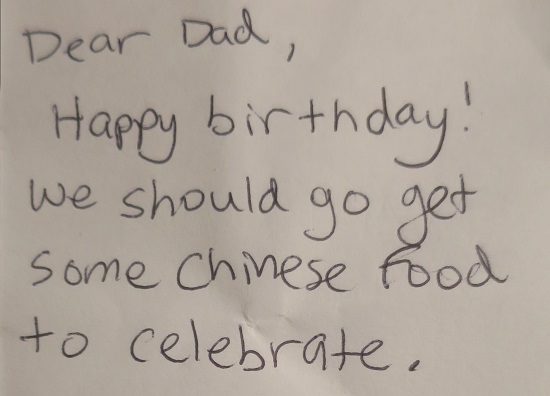 Dear Dad,
Happy birthday!
We should go get
some Chinese food
to celebrate.